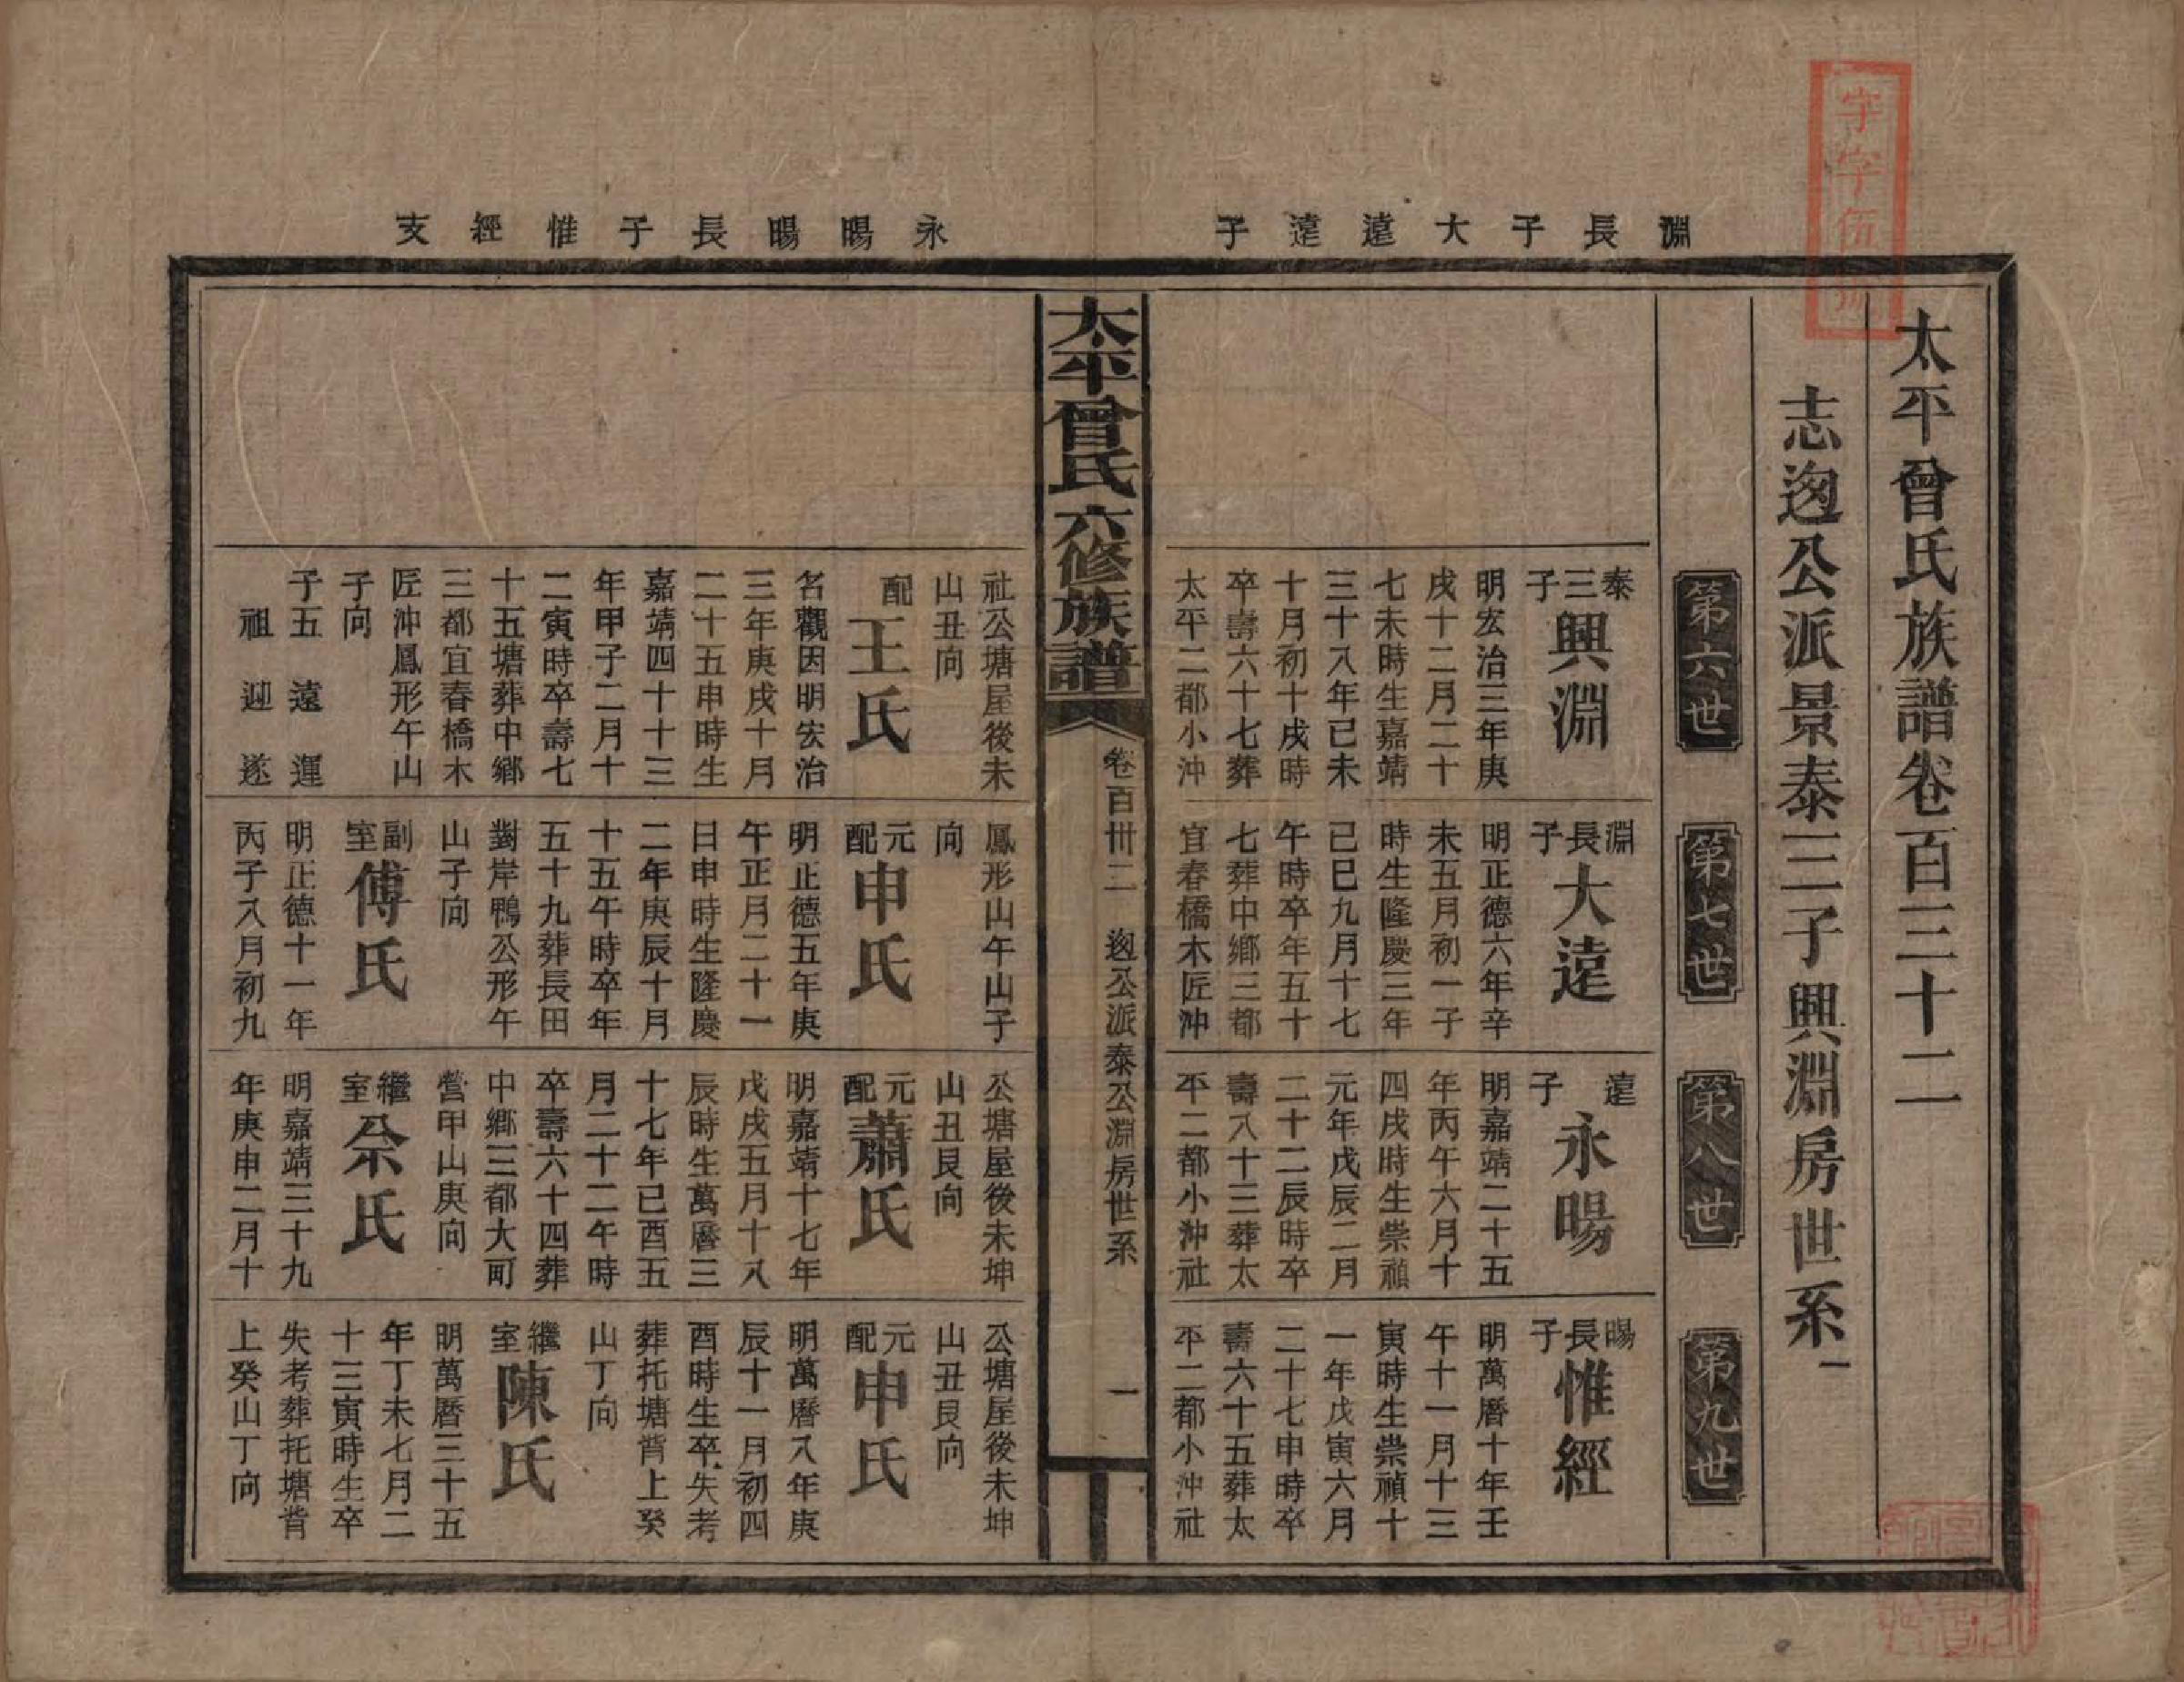 淵長子大遠遠子
永暘暘長子惟經支
太平曾氏族譜卷百三十二
志迥公派景泰三子興淵房世系一
第六世
泰三子
興淵
明宏治三年庚
戌十二月二十
七未時生嘉靖
三十八年己未
十月初十戌時
卒壽六十七葬
太平二都小沖
社公塘屋後未
山丑向
配
王氏
名觀因明宏治
三年庚戌十月
二十五申時生
嘉靖四十十三
年甲子二月十
二寅時卒壽七
十五塘葬中鄉
三都宜春橋木
匠沖鳳形午山
子向
子五 遠 運
祖 迎 遂
第七世
淵長子
大遠
明正德六年辛
未五月初一子
時生隆慶三年
己巳九月十七
午時卒年五十
七葬中鄉三都
宜春橋木匠沖
鳳形山午山子
向
元配
申氏
明正德五年庚
午正月二十一
日申時生隆慶
二年庚辰十月
十五午時卒年
五十九葬長田
對岸鴨公形午
山子向
副室
傅氏
明正德十一年
丙子八月初九
第八世
遠子
永暘
明嘉靖二十五
年丙午六月十
四戌時生崇禎
元年戊辰二月
二十二辰時卒
壽八十三葬太
平二都小沖社
公塘屋後未坤
山丑艮向
元配
蕭氏
明嘉靖十七年
戊戌五月十八
辰時生萬曆三
十七年己酉五
月二十二午時
卒壽六十四葬
中鄉三都大町
營甲山庚向
繼室
佘氏
明嘉靖三十九
年庚申二月十
第九世
暘長子
惟經
明萬曆十年壬
午十一月十三
寅時生崇禎十
一年戊寅六月
二十七申時卒
壽六十五葬太
平二都小沖社
公塘屋後未坤
山丑艮向
元配
申氏
明萬曆八年庚
辰十一月初四
酉時生卒失考
葬托塘背上癸
山丁向
繼室
陳氏
明萬曆三十五
年丁未七月二
十三寅時生卒
失考葬托塘背
上癸山丁向
太平曾氏六修族譜
卷百卅二 迥公派泰公淵房世系 一